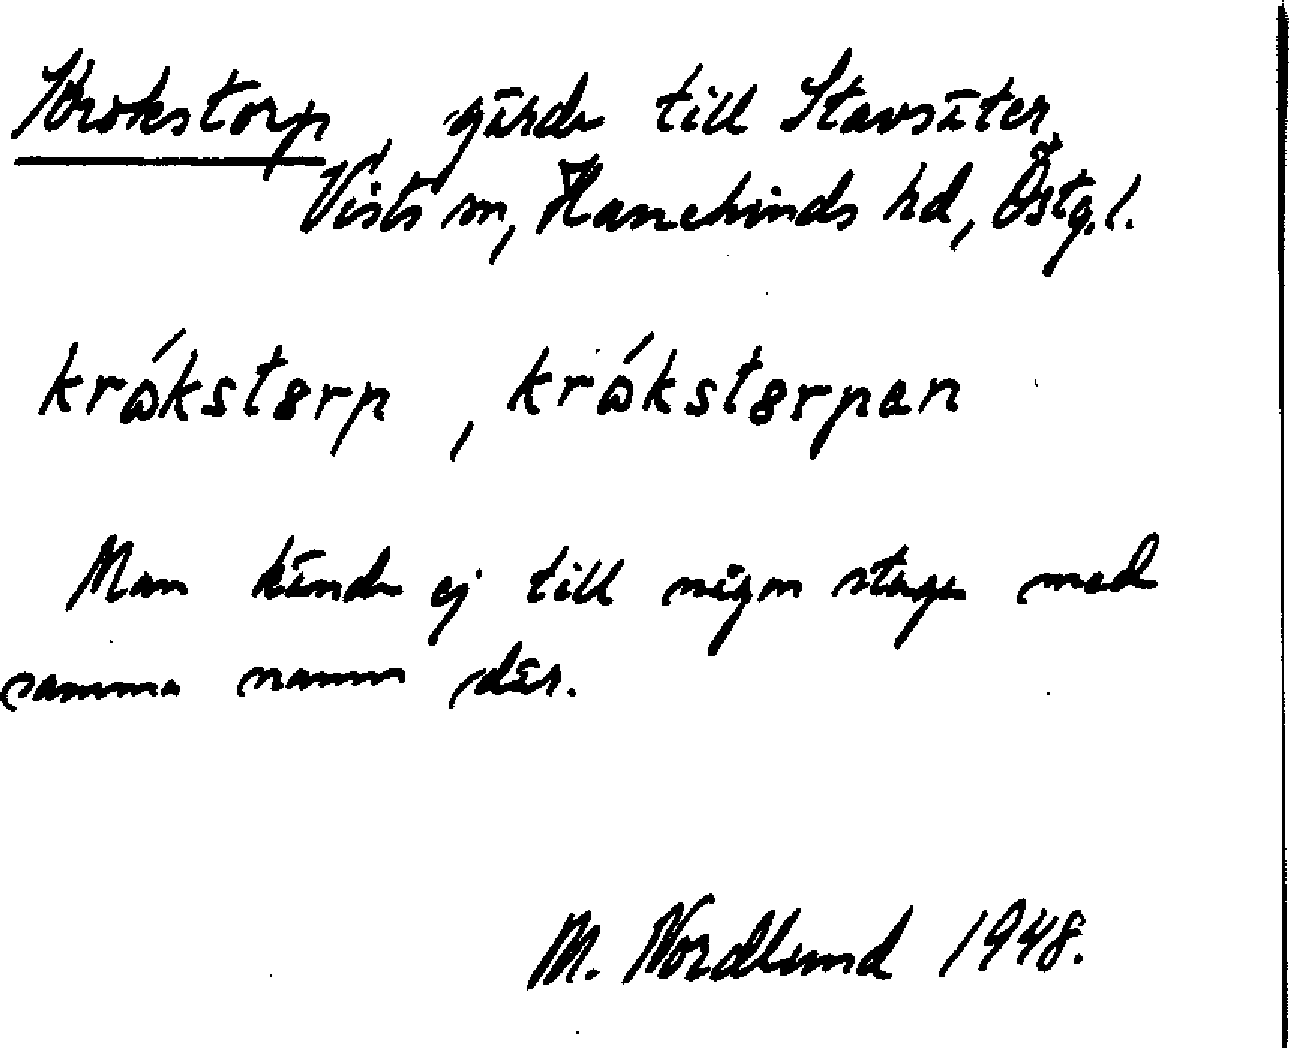 Krokstorp, gärde till Stavsäter,
Vists sn, Hanekinds hd, Östg. l.
krωákstɞrp, krωákstɞrpan
Man kände ej till någon stuga med
samma namn där.
M. Nordlund 1948.